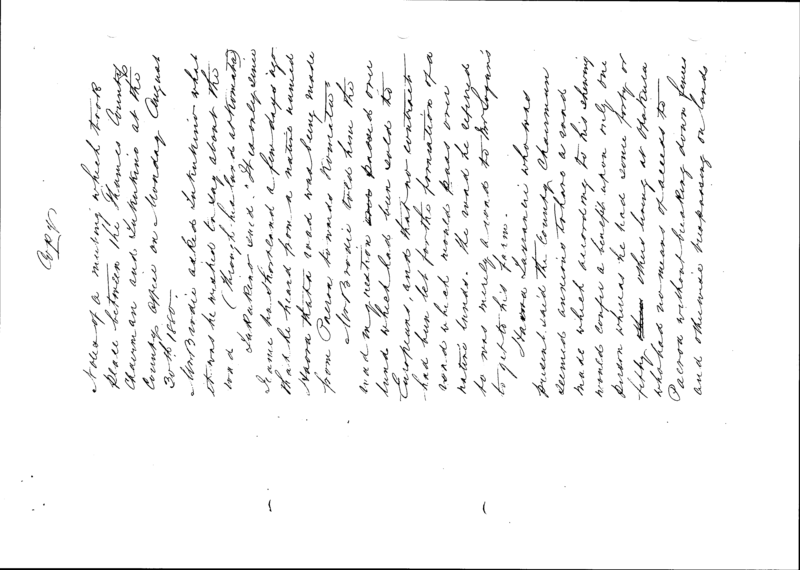 Copy
Notes of a meeting which took
place between the Thames County
Chairman and Tukukino at the
County office on Monday August
30th 1880.
Mr Brodie asked Tukukino what
it was he wished to say about the
road (through his land at Komata)
Tukukino said. "I came since
I came to Shortland a few days ago
that he heard from a native named
Haora that a road was being made
from Paeroa towards Komata"
Mr Brodie told him the
road in question passed over
land which had been sold to
Europeans, and that no contract
had been let for the formation of a
road which would pass over
native lands. The road he referred
to was merely a road to McLogan's
to get to his farm.
Haora who was
present said the County Chairman
seemed anxious to have a road
made which according to his showing
would confer a benefit upon only one
person whereas he had some forty or
fifty others living at Opukeia
who had no means of access to
Paeroa without breaking down fences
and otherwise trespassing on lands